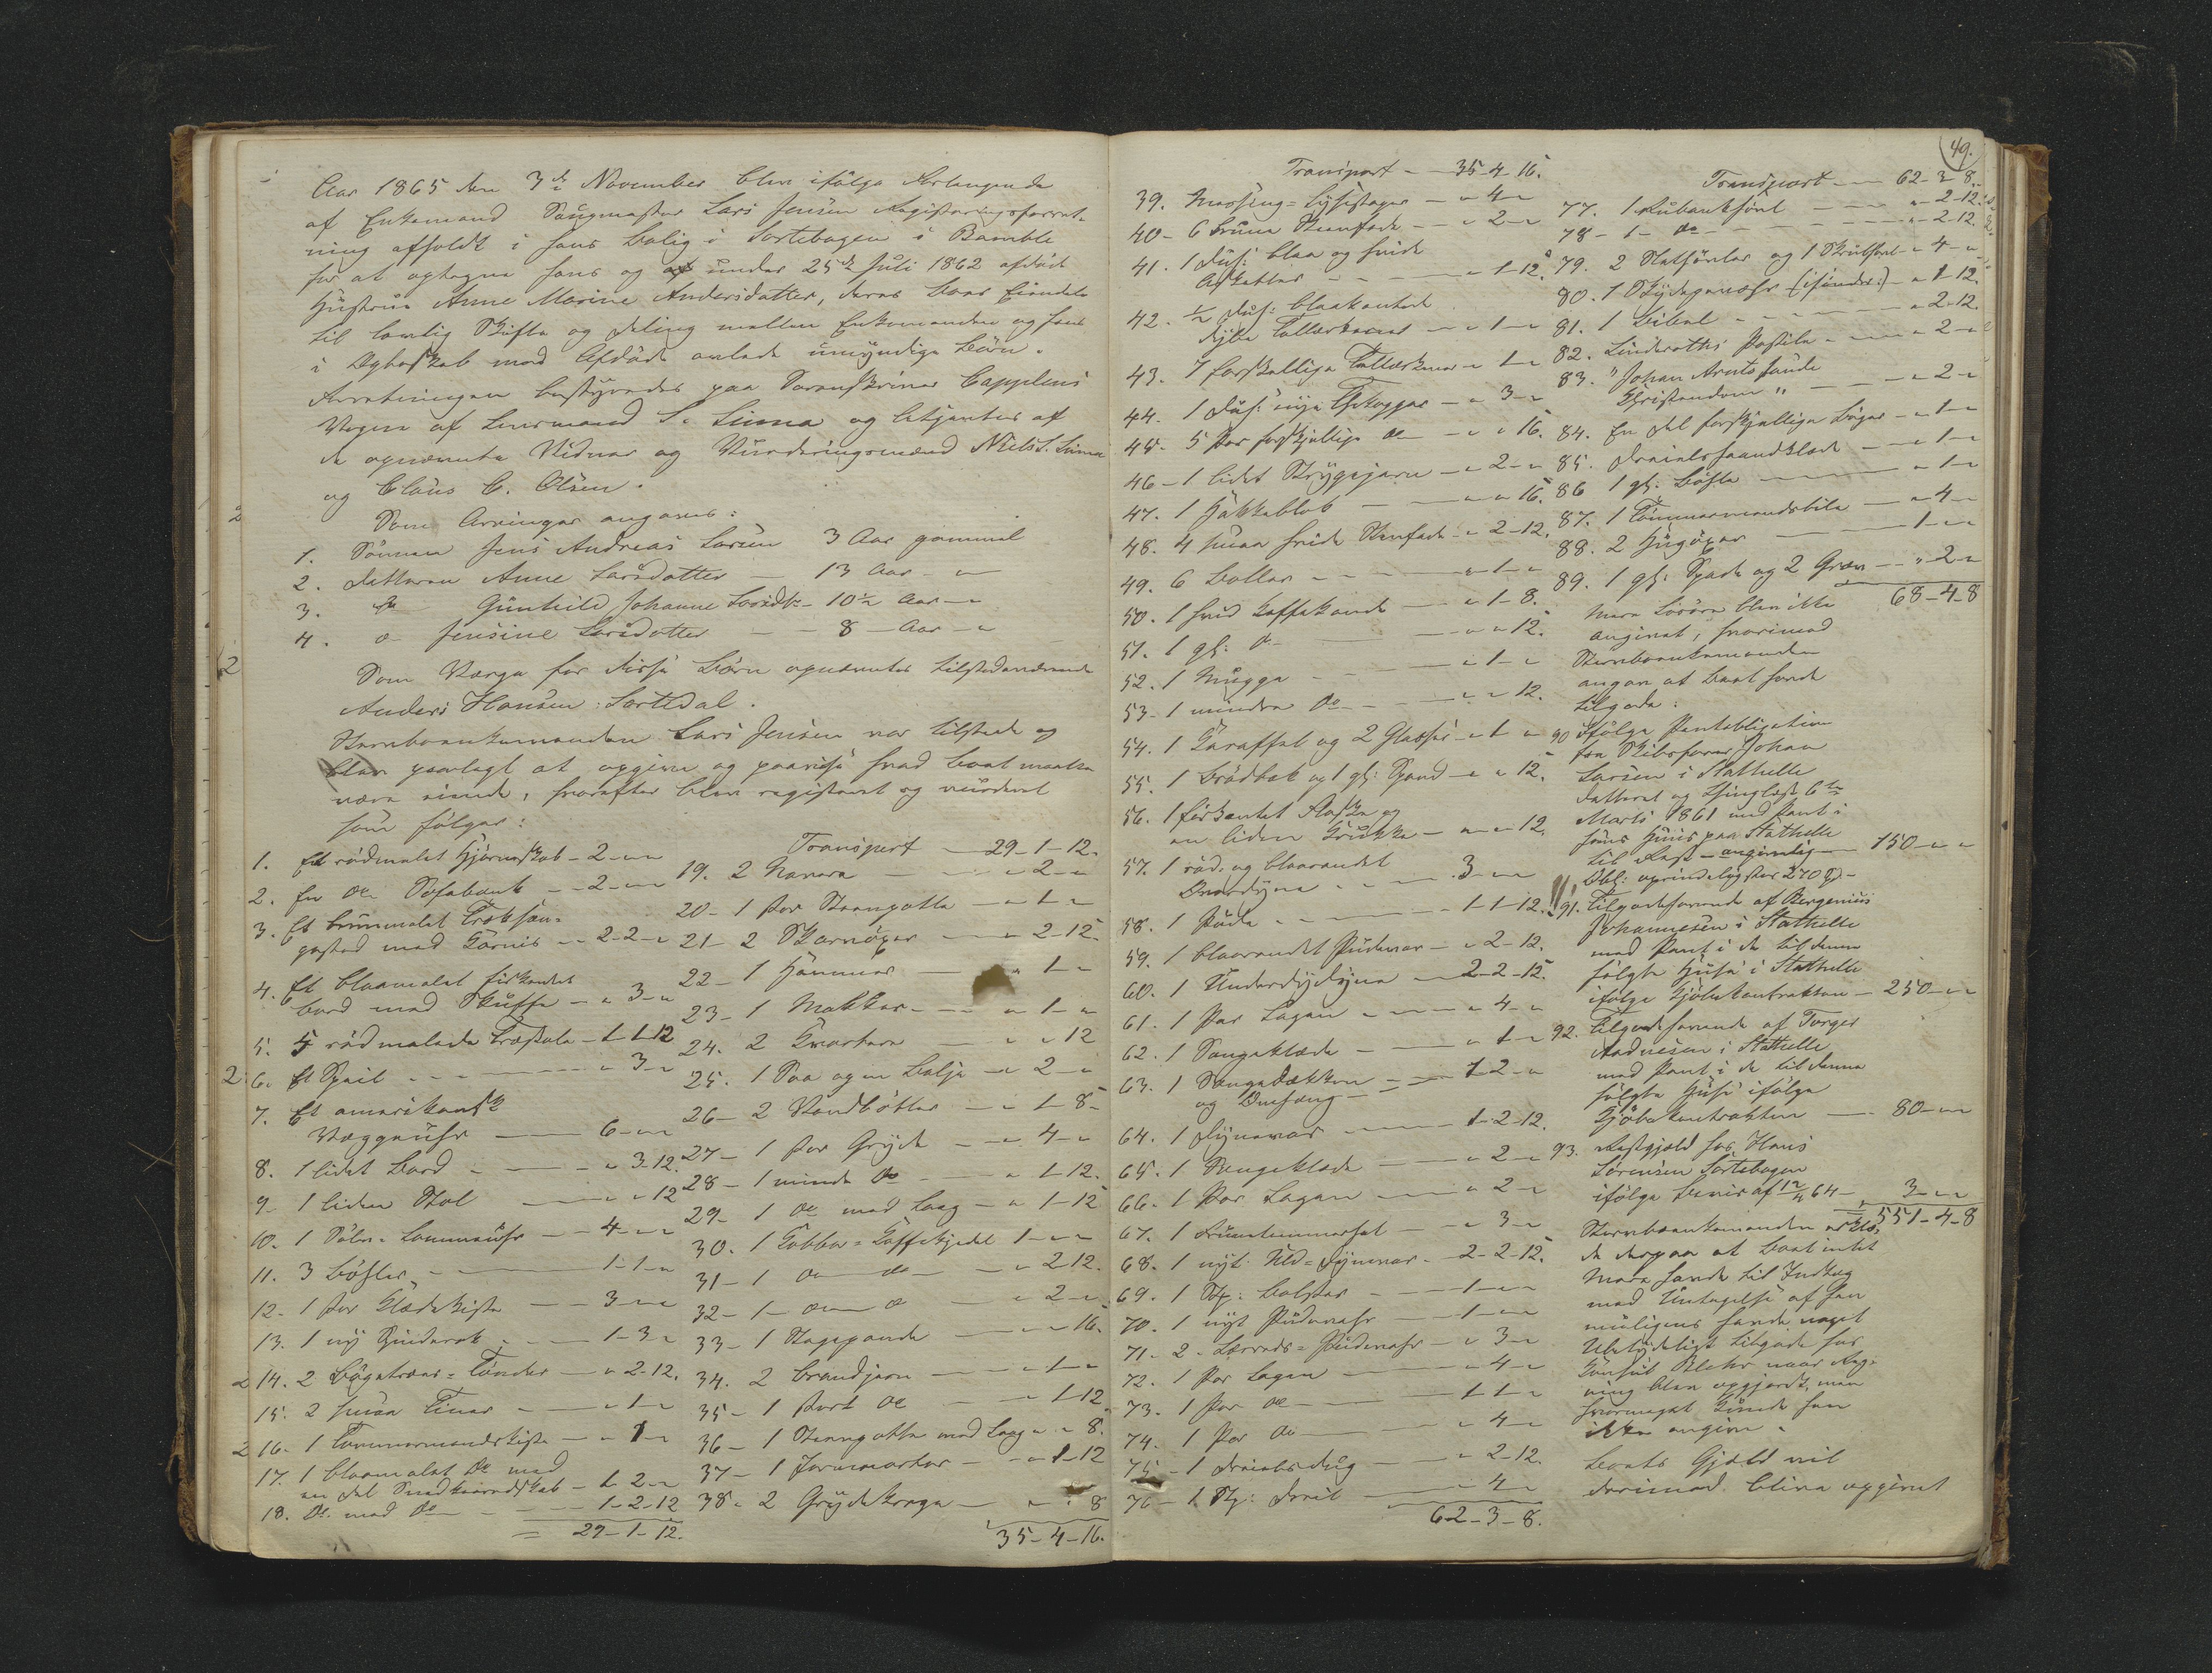 Aar 1865 den 3die November blev ifølge Forlangende
af Enkemand Saugmester Lars Jensen Registreringsforret-
ning afholdt i hans Bolig i Sortebogen i Bamble
for at optegne hans og under 25de Juli 1862 afdøde
Hustrue Anne Marine Andersdatter, deres Boes Eiendele
til lovlig Skifte og Deling mellem Enkemanden og hans
i Ægteskab med Afdøde avlede umyndige Børn.
Forretningen bestyredes paa Sorenskriver Cappelens
Vegne af Lensmand S. Linna og betjentes af
de opnævnte Vidner og Vurderingsmænd Niels S. Linna
og Claus C. Olsen.
Som Arvinger angaves:
1. Sønnen Jens Andreas Larsen 3 Aar gammel
2. Datteren Anne Larsdatter — 13 Aar — "
3. do Gunhild Johanne Larsdtr — 10½ Aar — "
4. do Jensine Larsdatter — 8 — Aar — "
Som Værge for disse Børn opnævntes tilstedeværende
Anders Hansen Sortedal.
Stervboenkemanden Lars Jensen var tilstede og
blev paalagt at opgive og paavise hvad Boet maatte
være eiende, hvorefter blev registreret og vurderet
som følger:
1. Et rødmalet Hjørneskab — 2 — " — "
2. En do Sofabænk — 2 — " — "
3. Et brunmalet Træksen-
gested med Garnis — 2 - 2 — "
4. Et blaamalet firkantet
Bord med Skuffe — " 3 — "
5. 5 rødmalede Træstole — 1 - 1 - 12
6. Et Speil — " 3 — "
7. Et amerikansk
Vægguhr — 6 — " — "
8. 1 lidet Bord — " 3 - 12.
9. 1 liden Stol — " " 12
10. 1 Sølv-Lommeuhr — 4 — " — "
11. 3 Bøsler — 1 - 1 — "
12. 1 stor Klædekiste — 3 — " — "
13. 1 ny — 1 - 3 — "
14. 2 Bøgetræes-Tønder — " 2 - 12.
15. 2 smaa Tiner — " 1 — "
16. 1 Tømmermandskiste — " 1 — "
17. 1 blaamalet do med
en Del Snedkerredskab — 1 - 2 — "
18. do med do — 1 - 2 - 12
= 29 - 1 - 12.
Transport — 29 - 1 - 12.
19. 2 Navere — " 2 — "
20 - 1 stor Steengotte — " 1 — "
21 - 2 Skarøxer — " 2 - 12.
22 - 1 Hammer — " 1 — "
23 - 1 — " 1 — "
24. 2 — " " 12
25. 1 Saa og en Balje — " 2 — "
26 - 2 Vandbøtter — " 1 - 8 -
27 - 1 stor Gryde — " 4 — "
28 - 1 mindre do — " 1 - 12.
29 - 1 do med Laag — " 1 - 12
30. 1 Kobber-Kaffekjedel 1 — " — "
31 - 1 do do — " 2 - 12.
32 - 1 - do do — " 2 — "
33 - 1 Stegepande — " " 16.
34. 2 Brandjern — " 1 — "
35 - 1 stort do — " 1 - 12
36 - 1 Steengotte med Laag " " 8.
37 - 1 Jernmorter — " 1 - 12
38 - 2 Grydekroge — " " 8
35 - 4 - 16.
Transport — 35 - 4 - 16.
39. Messing-Lysestager — " 4 — "
40 - 6 brune Steenfade — " 2 — "
41. 1 Dus: blaa og hvide
Asketter — " 1 - 12.
42. ½ Dus: blaakantede
dybe Tallerkener — " 1 — "
43. 7 forskjellige Tallerkener " 1 — "
44. 1 Dus: nye Thekopper — " 3 — "
45. 5 Par forskjellige do — " " 16.
46 - 1 lidet Strygejern — " 2 — "
47. 1 Hakkeblok — " " 16.
48. 4 smaa hvide Steenfade — " 2 - 12.
49. 6 Boller — " 1 — "
50. 1 hvid Kaffekande — " 1 - 8.
51. 1 gl: do — " " 12.
52. 1 Mugge — " 1 — "
53 - 1 mindre do — " " 12.
54. 1 Karaffel og 2 Glasser — " 1 — "
55. 1 Brødbak og 1 gl: Spand — " " 12.
56. 1 firkantet Flaske og
en liden Krukke — " " 12.
57. 1 rød- og blaarandet
Overdyne — 3 — " — "
58. 1 Pude — 1 - 1 - 12.
59. 1 blaarandet Pudevar — " 2 - 12.
60. 1 Underdyne — 2 - 2 - 12.
61. 1 Par Lagen — " 4 — "
62. 1 Sengeklæde — " 1 — "
63. 1 Sengedækken
og Omhæng — 1 - 2 — "
64. 1 Dynevar — 1 - 2 - 12.
65. 1 Sengeklæde — " 2 — "
66. 1 Par Lagen — " 2 — "
67. 1 — " 3 — "
68. 1 nyt Uld-Dynevar — 2 - 2 - 12.
69. 1 Stk: Bolster — 1 — " — "
70. 1 nyt Pudevahr — 1 — " — "
71 - 2 Lærreds-Pudevahr — " 3 — "
72. 1 Par Lagen — " 4 — "
73. 1 Par do — 1 - 1 — "
74. 1 Par do — " 4 — "
75 - 1 Dreielsdug — " 2 - 12.
76 - 1 Stk: Dreil — " 4 — "
62 - 3 - 8.
49.
Transport — 62 - 3 - 8.
77. 1 Rubankhøvl — " 2 - 12.
78 - 1 - do — " 2 - 12.
79. 2 Sletthøvler og 1 Skrubhøvl " 4 — "
80. 1 Skydegevæhr (: isønder :) — " 1 - 12.
81. 1 Bibel — " 2 - 12.
82. Linderotts Postile — " 2 — "
83. "Johan Arnts sande
Christendom" — " 2 — "
84. En Del forskjellige Bøger — " 1 — "
85. Dreielshaandklæde — " 1 — "
86 1 gl: Bøsse — " 1 — "
87. 1 Tømmermandsbile — " 4 — "
88. 2 Hugøxer — 1 — " — "
89. 1 gl: Spade og 2 Grev — " 2 — "
68 - 4 - 8
Mere Løsøre blev ikke
angivet, hvorimod
Stervboenkemanden
angav at Boet havde
tilgode:
90 Ifølge Panteobligation
fra Skibsfører Johan
Larsen i Stathelle
dateret og thinglæst 6te
Marts 1861 med Pant i
hans Huus paa Stathelle
til Rest — angivelig — 150 — " — "
Obl: oprindelig stor 270 Spd —
91. Tilgodehavende af Bergenius
Johannesen i Stathelle
med Pant i de til denne
solgte Huse i Stathelle
ifølge Kjøbekontrakten — 250 — " — "
92. Tilgodehavende af Torger
Andresen i Stathelle
med Pant i de til denne
solgte Huse ifølge
Kjøbekontrakten — 80 — " — "
93. Restgjæld hos Hans
Sørensen Sortebogen
ifølge Beviis af 12/4 64 — 3 — " — "
= 551 - 4 - 8
Stervboenkemanden erklæ-
de derpaa at Boet intet
mere havde til Indtægt
med Undtagelse af han
muligens havde noget
Ubetydeligt tilgode hos
Konsul Blehr naar Reg-
ning blev opgjordt, men
hvormeget kunde han
ikke angive.
Boets Gjæld vil
derimod blive opgivet